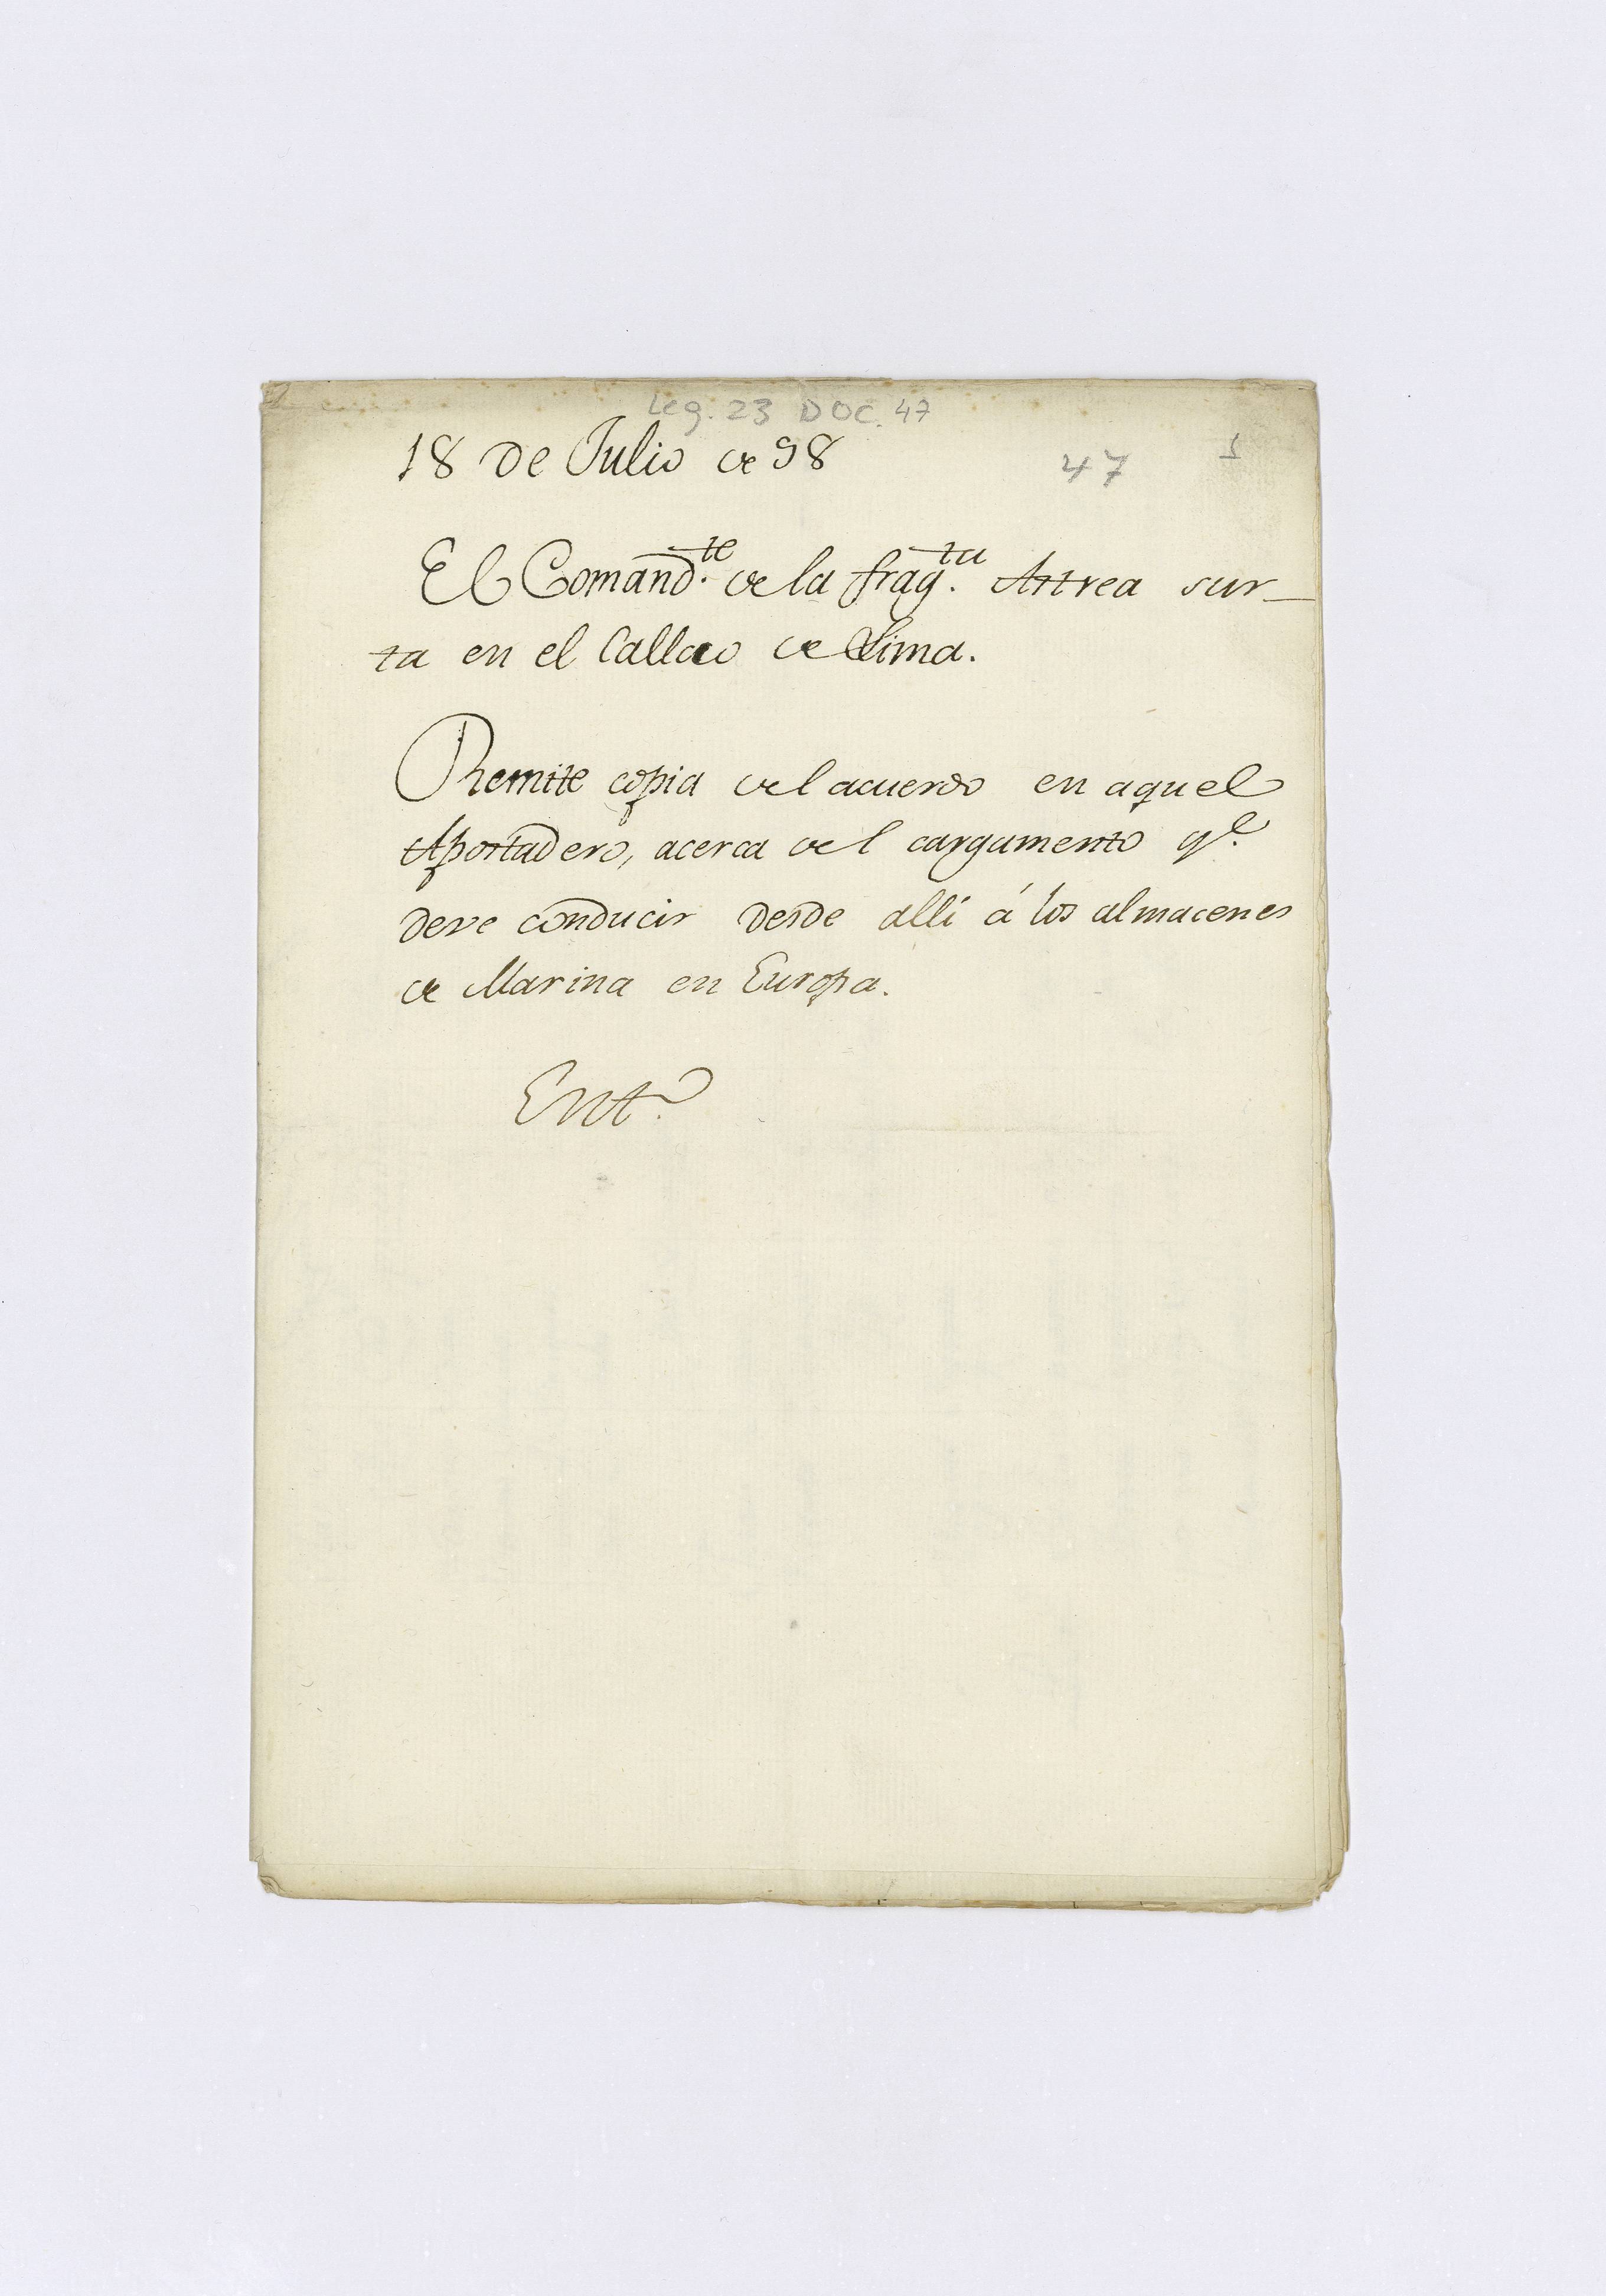 Leg. 23 DOC. 47
18 de Julio de 98
47
1
El Comand.te de la frag.ta Astrea sur-
ta en el Callao de Lima.
Remite copia del acuerdo en aquel
Apostadero, acerca del cargamento q.e
deve conducir desde alli á los almacenes
de Marina en Europa.
Ent.o